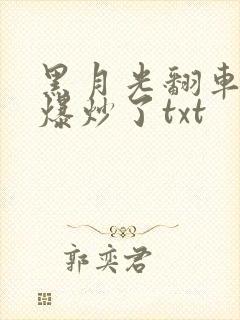 黑月光翻車
爆炒了txt
郭奕君